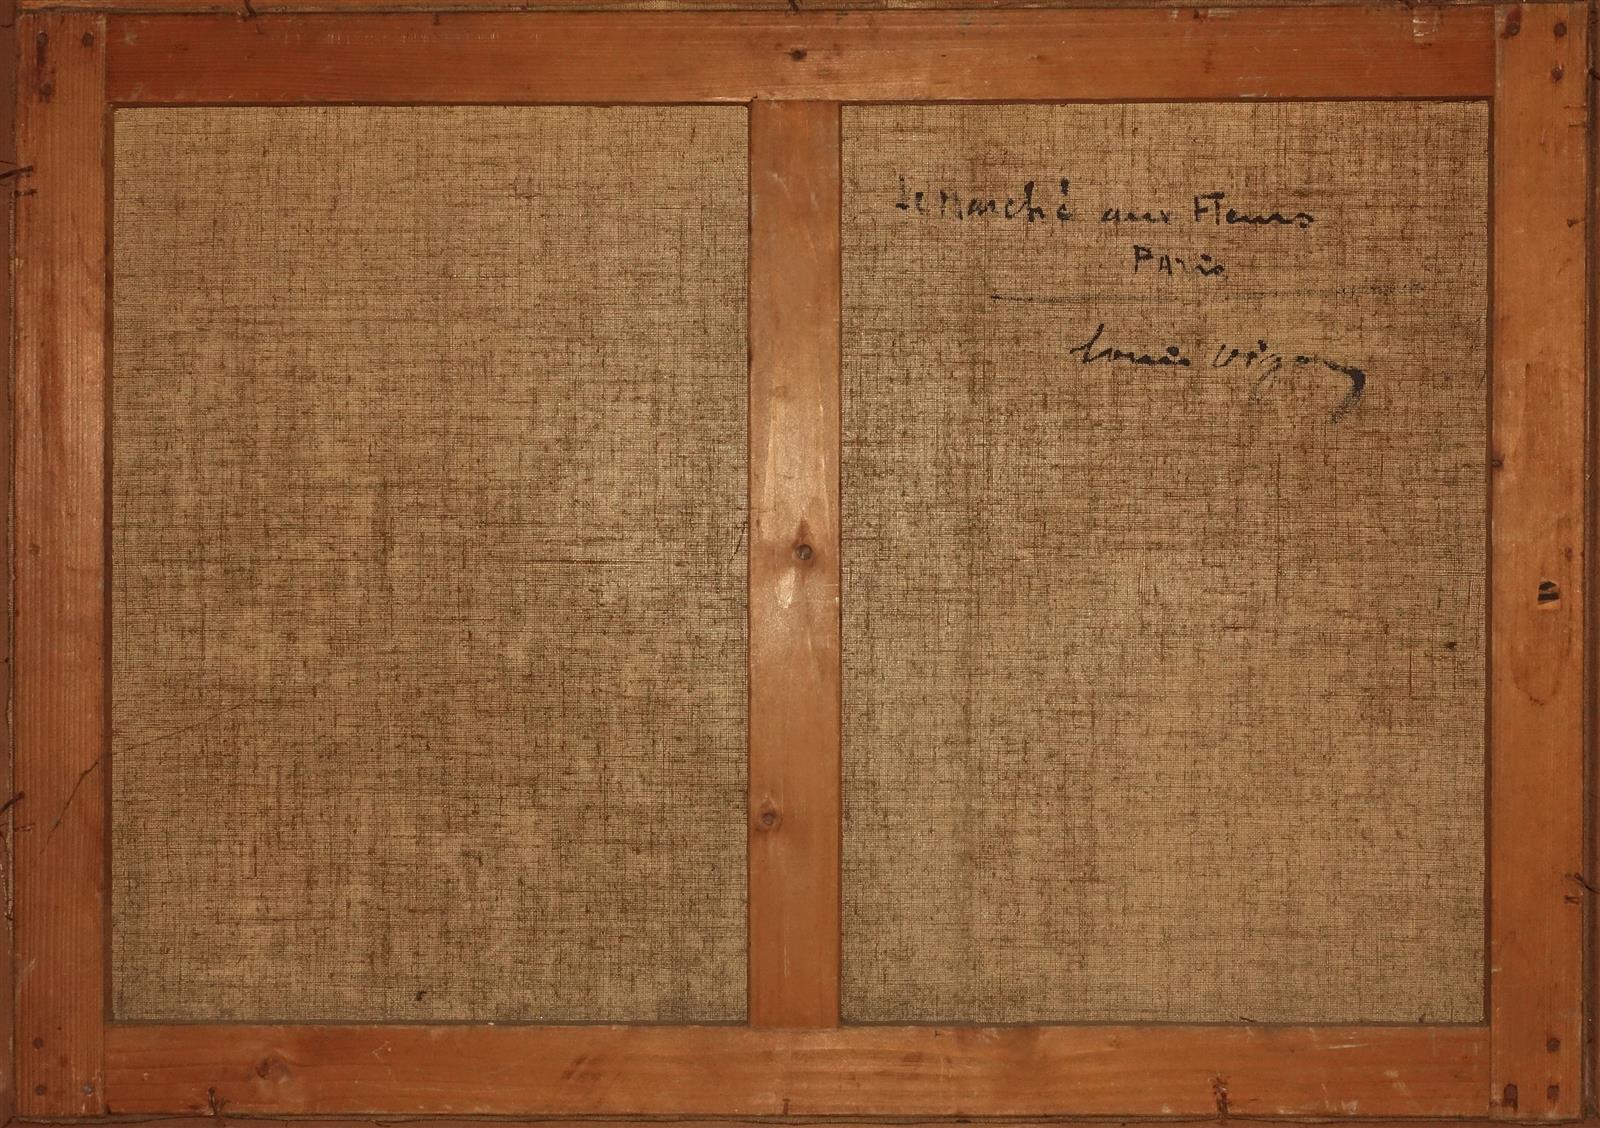 Le Marché aux Fleurs
Paris
Louis Vigon